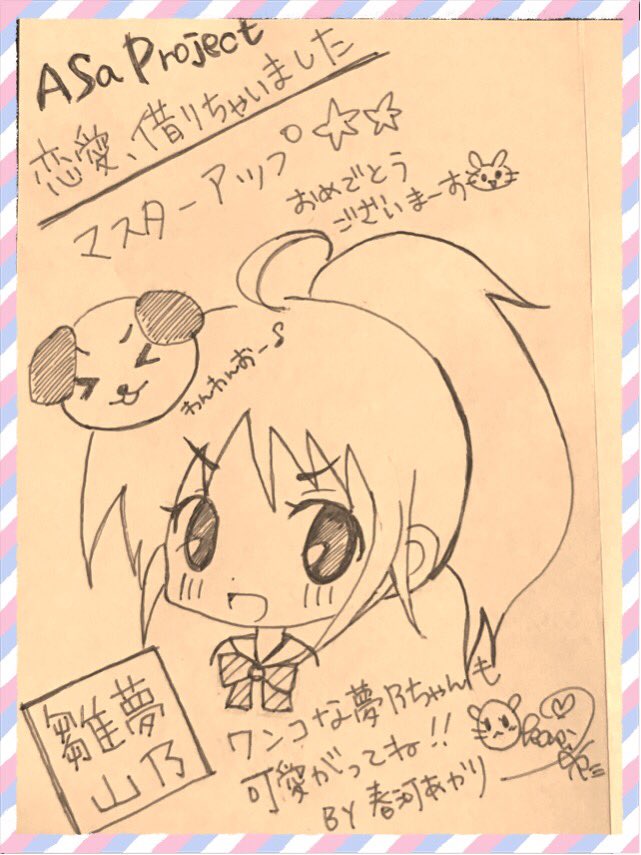 ASa Project
恋愛、借りちゃいました
マスターアップ☆☆
おめでとう
ございまーす
わんわんおー♪
雛山
夢乃
ワンコな夢乃ちゃんも
可愛がってね!!
BY 春河あかり